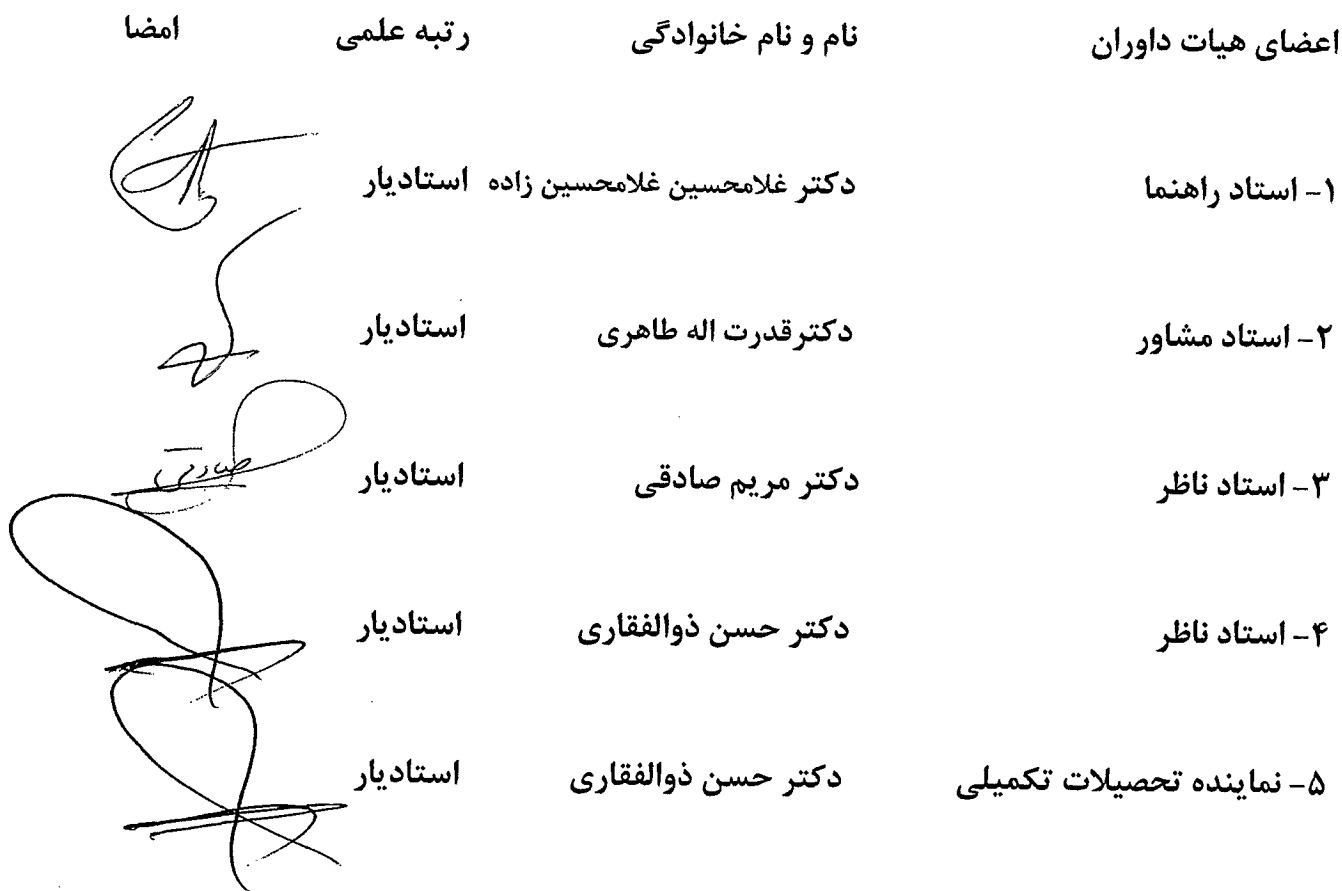 اعضای هیات داوران نام و نام خانوادگی رتبه علمی امضا
۱- استاد راهنما دکتر غلامحسین غلامحسین زاده استادیار
۲- استاد مشاور دکترقدرت اله طاهری استادیار
۳- استاد ناظر دکتر مریم صادقی استادیار صادقی
۴- استاد ناظر دکتر حسن ذوالفقاری استادیار
۵- نماینده تحصیلات تکمیلی دکتر حسن ذوالفقاری استادیار